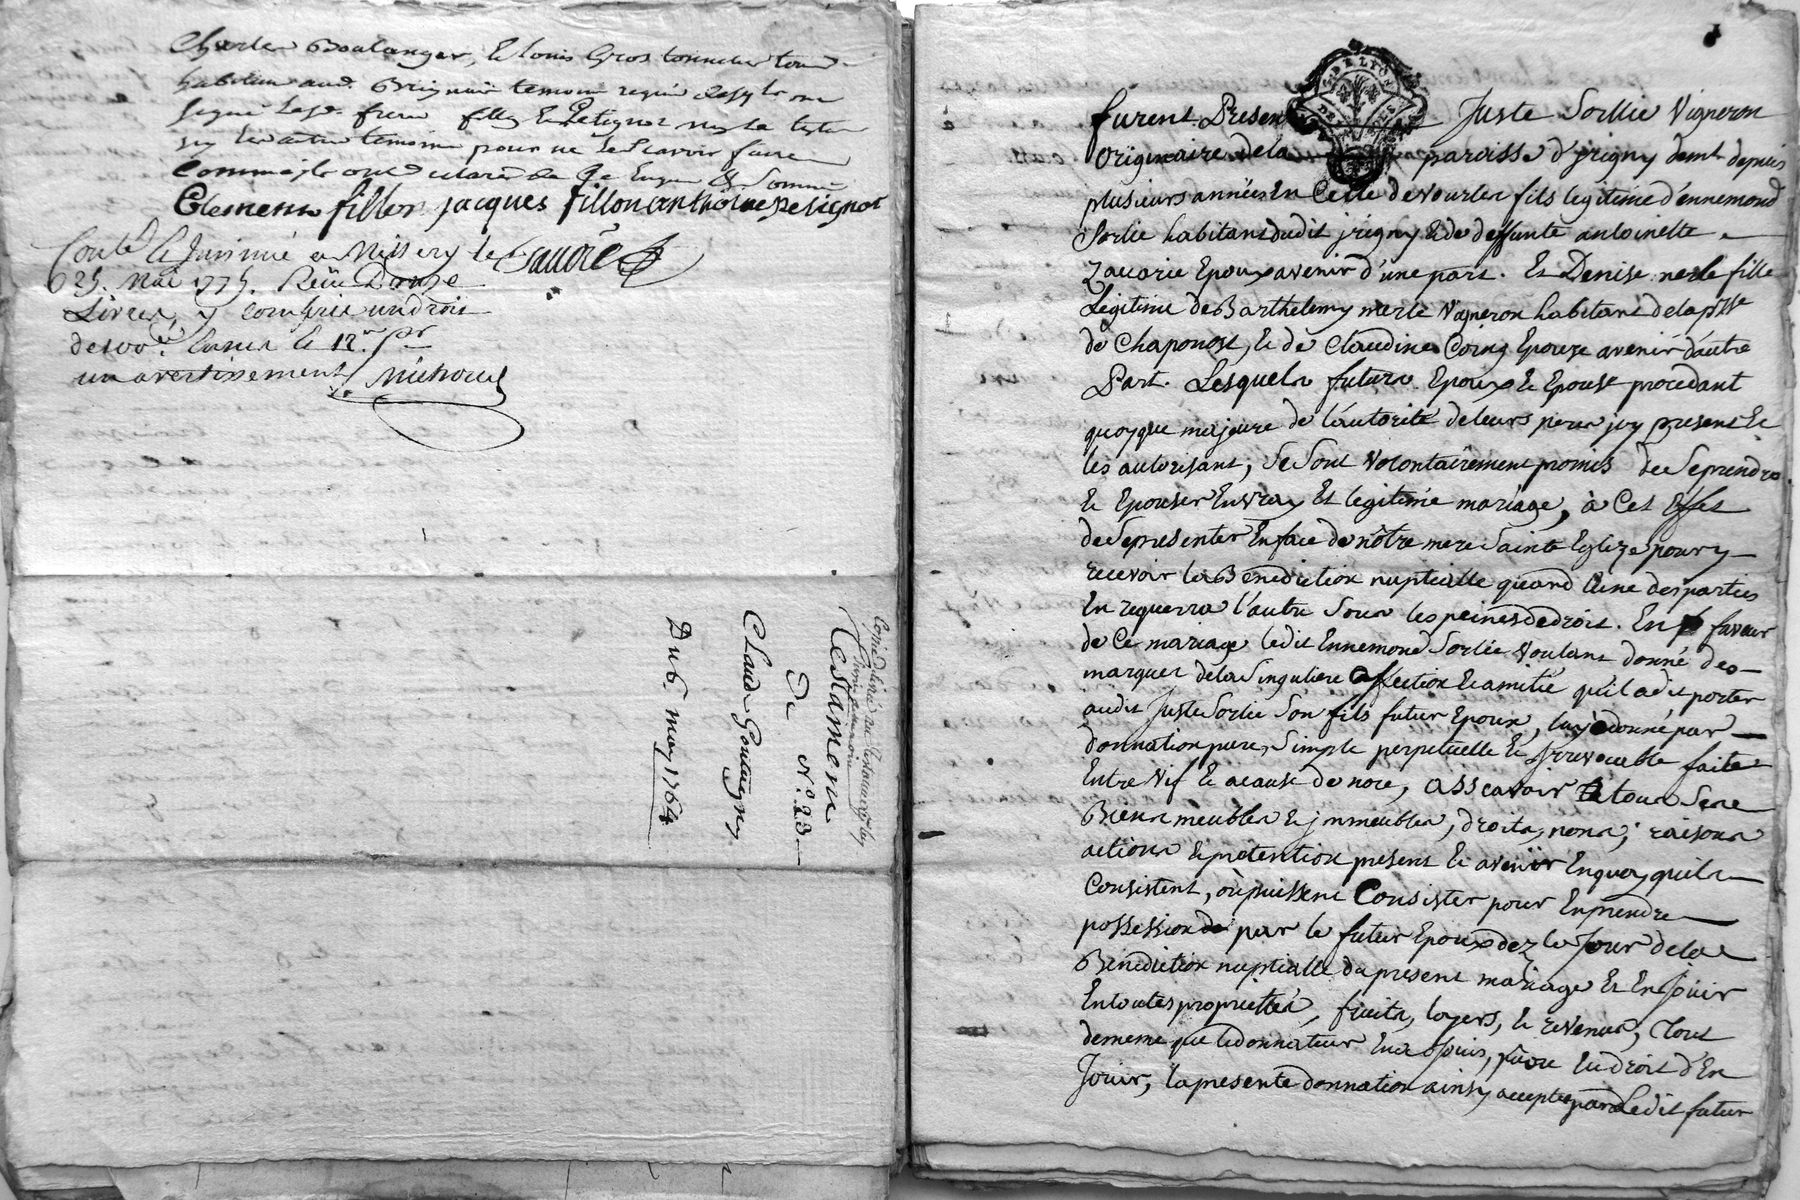 Charles Boulanger, & Louis Gros tonnelier tous
habitans aud. Brignais temoins requis lesq. ont
signé lesd. freres fillon & Petignot non le testa
ny les autres temoins pour ne le scavoir faire
comme ils ont declaré de ce Enquis & Sommé
Clement fillon jacques fillon anthoine petignot
Contlé & Insinué a Millery le
25. Mai 1775. Reçu Douze
Livres, y compris un droit
de 100e. laissé le 12. 7br
un avertissement
Controllé et insinué
Testament
De N.° 23
Claude Goutagny
Du 6. may 1764
1
G. DE LYON
furent Presen Juste Sorlie Vigneron
originaire de la paroisse d'jrigny demt. depuis
plusieurs années En Celle de Vourles fils legitime d'ennemond
Sorlie habitant dudit jrigny & de deffunte antoinette
Zacarie Epoux avenir d'une part. Et Denise merle fille
Legitime de Barthelemy merle Vigneron habitant de la psse
de Chaponost, & de Claudine Coing Epouse avenir d'autre
Part. Lesquels futurs Epoux & Epouse procedant
quoyque majeurs de l'autorité de leurs peres jcy present &
les autorisant, Se Sont Volontairement promis de Se prendre
& Epouser En vray Et legitime mariage, à Cet Effet
de Se presenter En face de nôtre mere Sainte Eglize pour y
recevoir la Benediction nuptialle quand l'une des parties
En requerra l'autre Sous les peines de droit. En faveur
de Ce mariage ledit Ennemond Sorlie Voulant donné des
marques de la Singuliere affection & amitié qu'il a dit porter
audit Juste Sorlie Son fils futur Epoux, luy a donné par
donnation pure, Simple perpetuelle & jrrevocable faite
Entre Vif & acause de noce, assçavoir tous Ses
Biens meubles & jmmeubles, droits, noms, raisons
actions & pretention present & avenir En quoy qu'ils
Consistent, ou puissent Consister pour En prendre
possession par le futur Epoux dez le Jour de la
Benediction nuptialle du present mariage Et En Jouir
En toutes proprietés, fruits, loyers, & revenus, tout
de meme que le donnateur En a Joüis, pû ou Eu droit d'En
Jouir, la presente donnation ainsy acceptée par Ledit futur